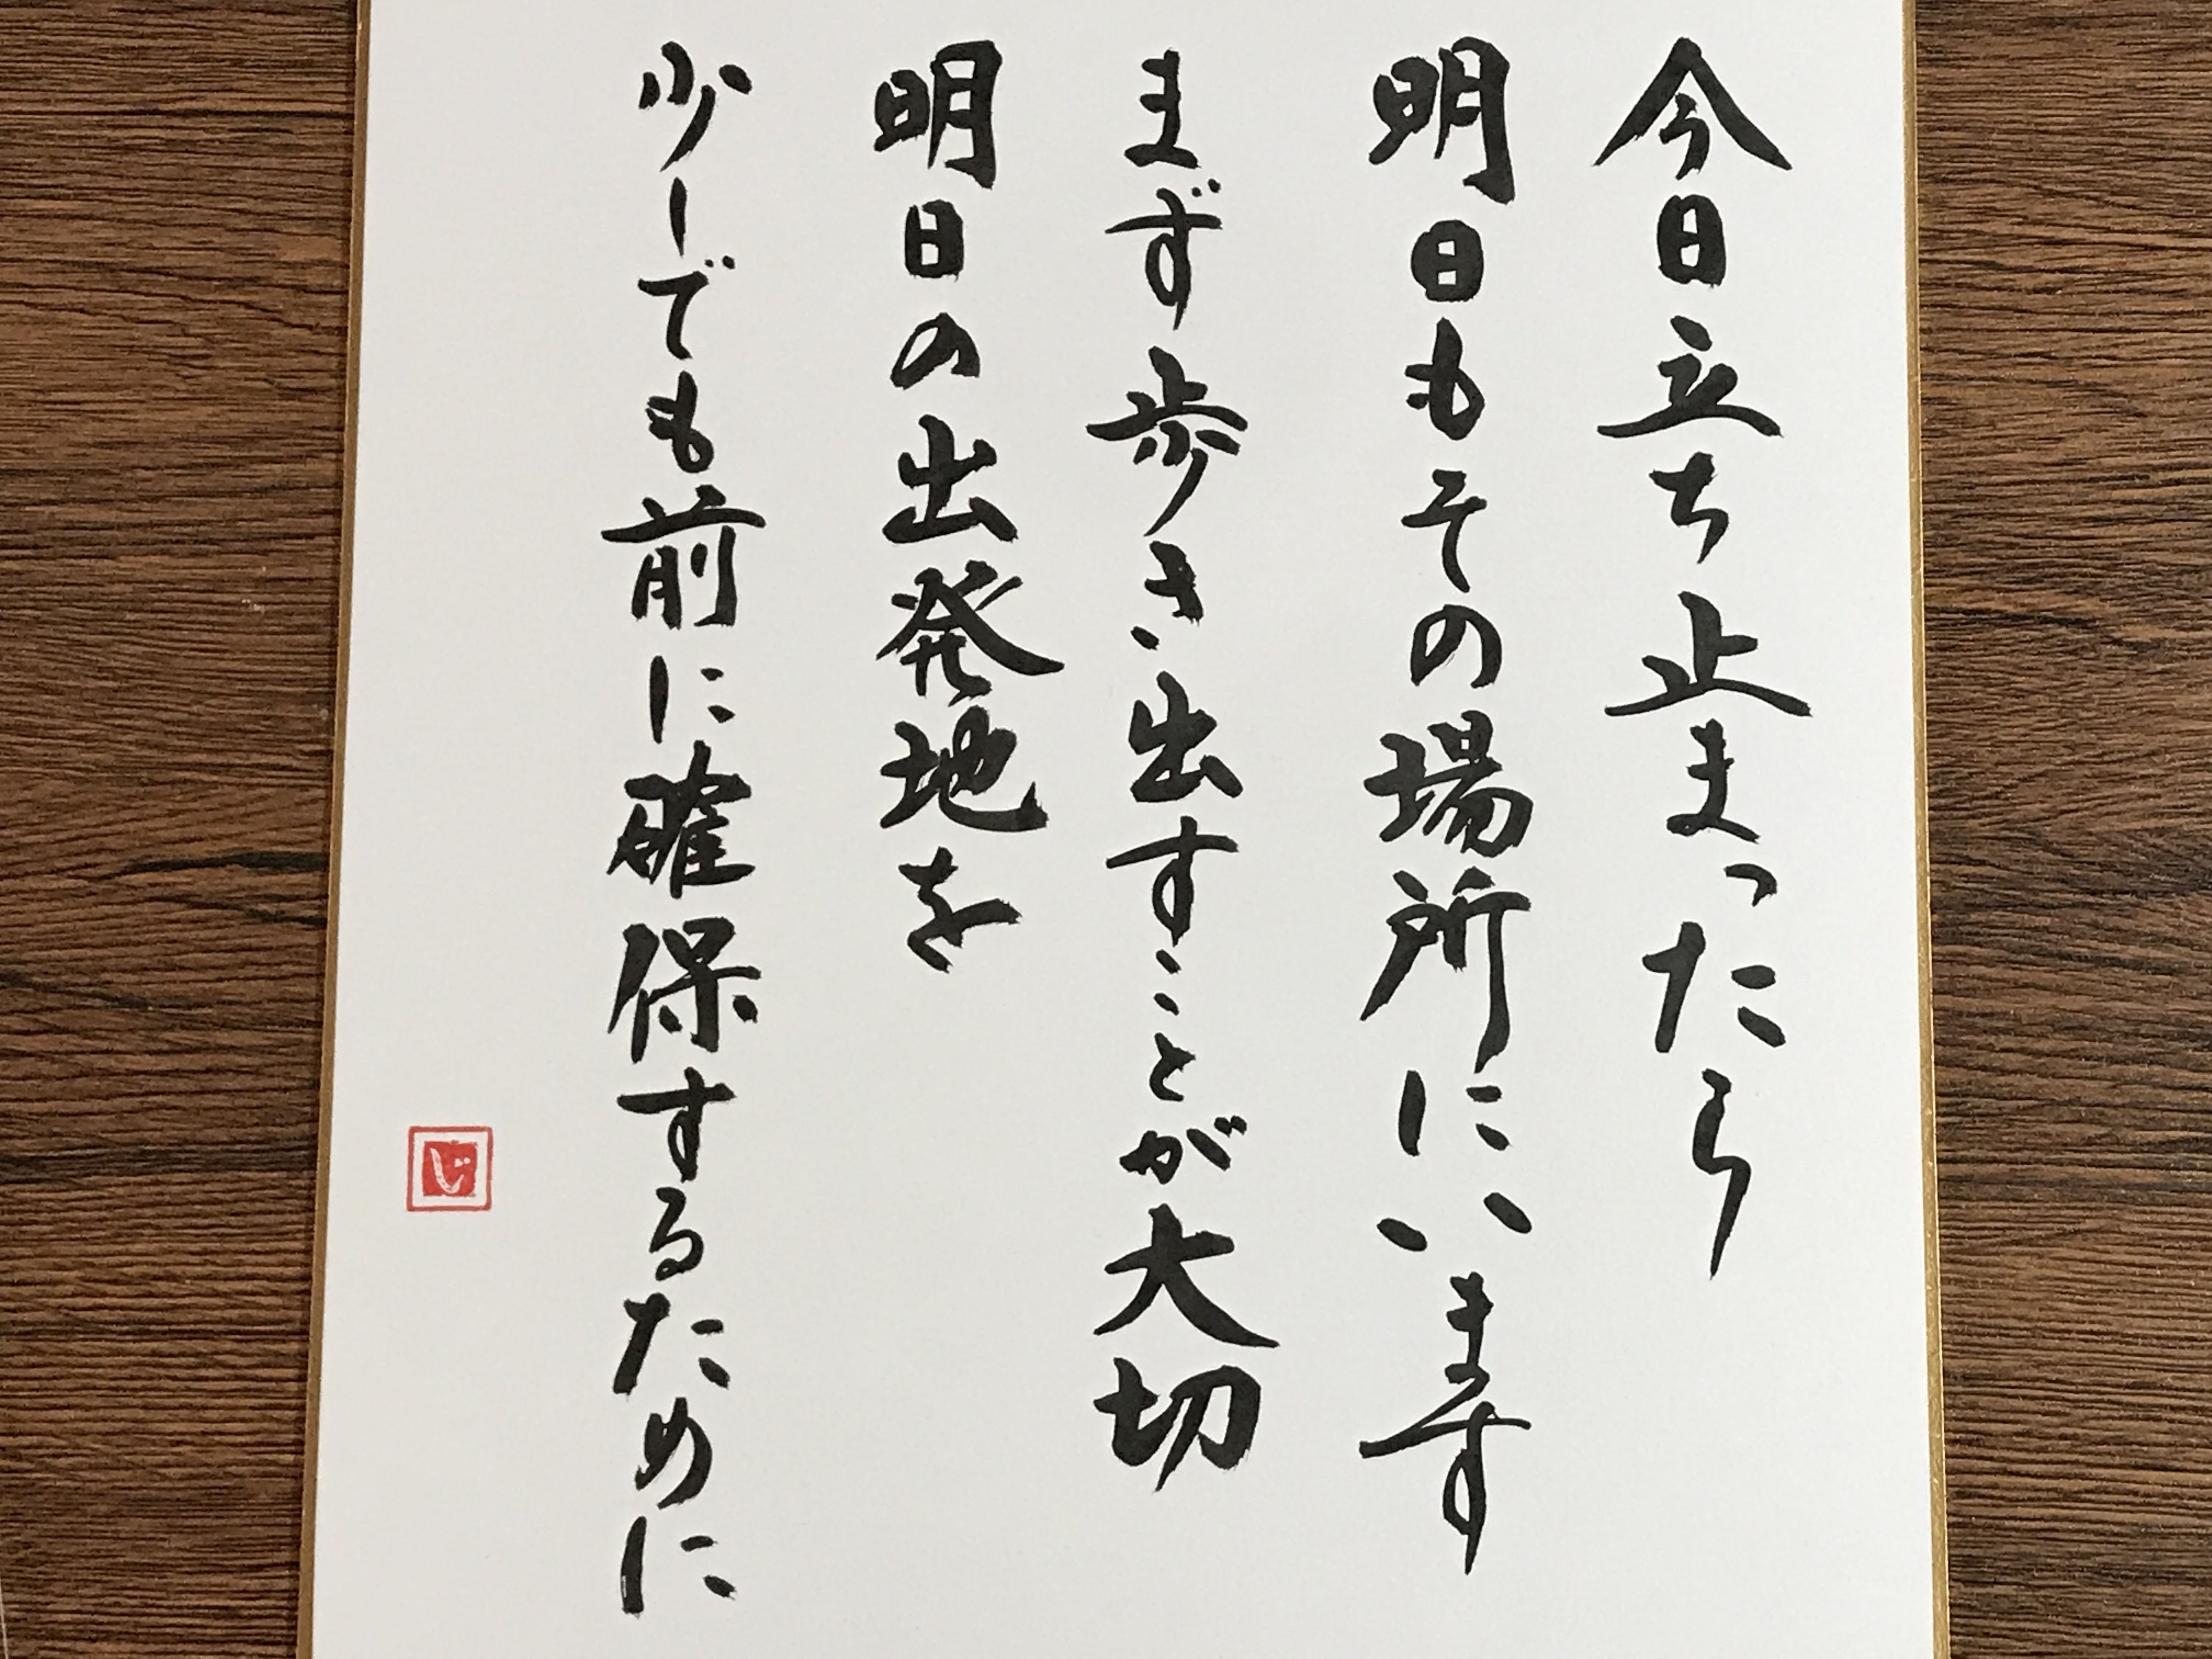 今日立ち止まったら
明日もその場所にいます
まず歩き出すことが大切
明日の出発地を
少しでも前に確保するために
じ